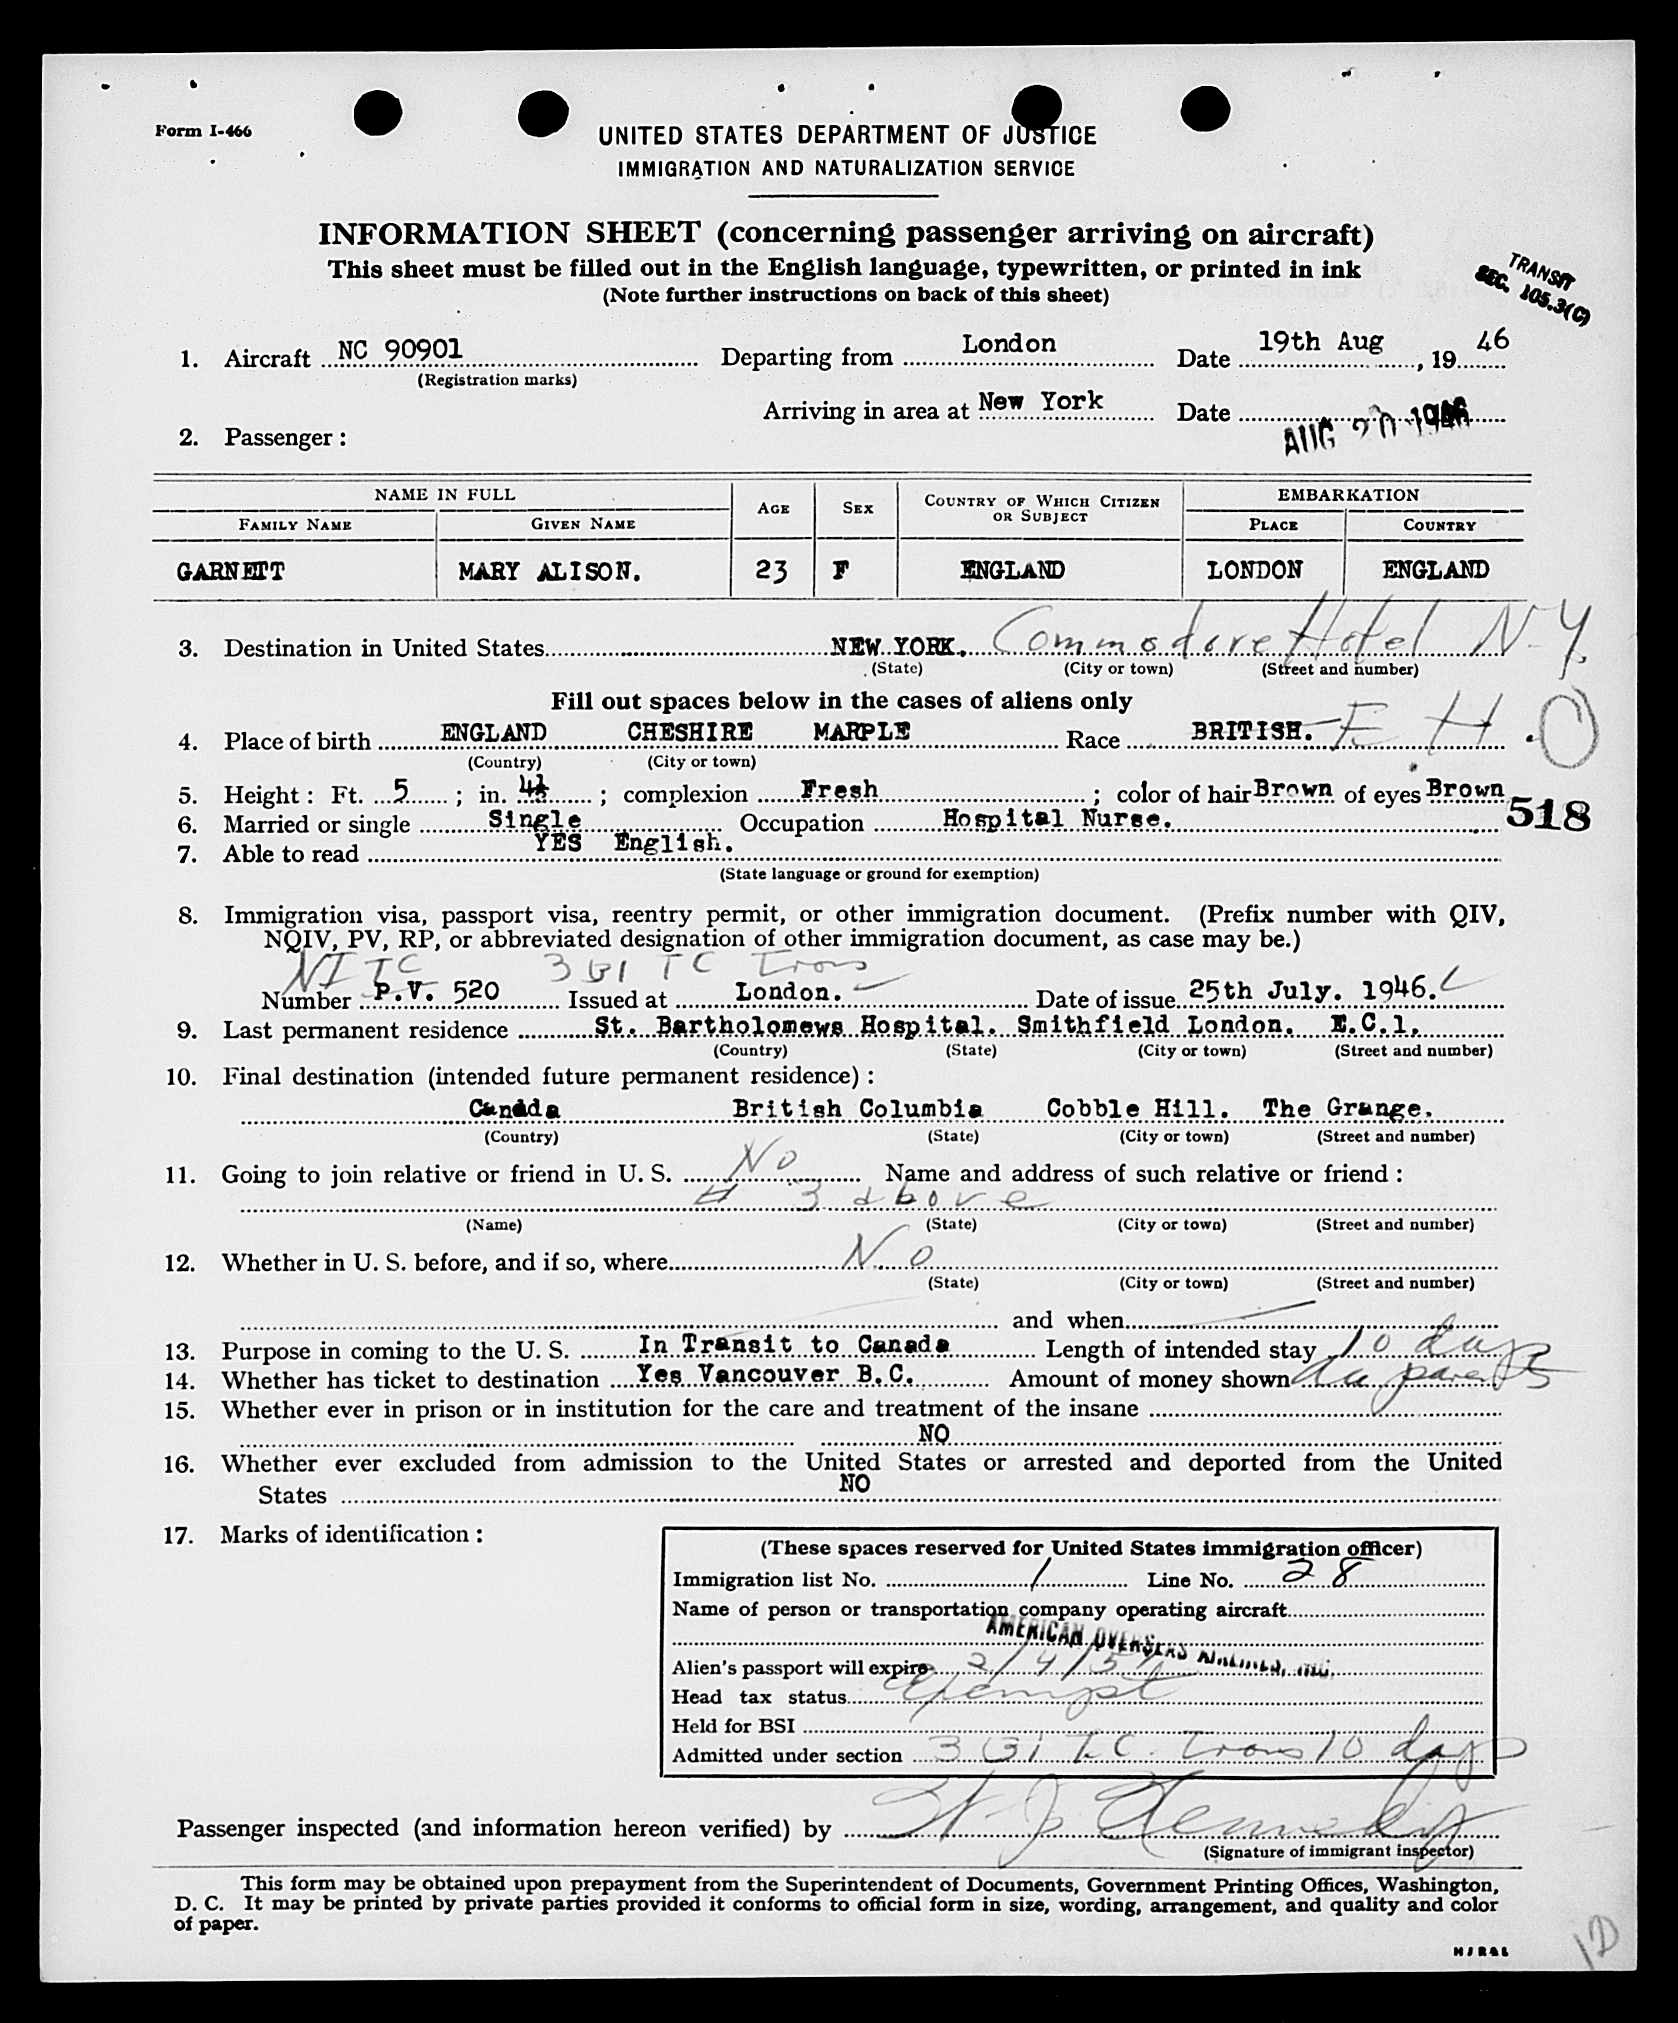 Form I-466
UNITED STATES DEPARTMENT OF JUSTICE
IMMIGRATION AND NATURALIZATION SERVICE
INFORMATION SHEET (concerning passenger arriving on aircraft)
This sheet must be filled out in the English language, typewritten, or printed in ink
(Note further instructions on back of this sheet)
TRANSIT
SEC. 105.3(C)
1. Aircraft NC 90901 Departing from London Date 19th Aug, 1946
(Registration marks)
Arriving in area at New York Date AUG 20 1946
2. Passenger:
NAME IN FULL AGE SEX COUNTRY OF WHICH CITIZEN OR SUBJECT EMBARKATION
FAMILY NAME GIVEN NAME PLACE COUNTRY
GARNETT MARY ALISON. 23 F ENGLAND LONDON ENGLAND
3. Destination in United States NEW YORK. Commodore Hotel N-Y.
(State) (City or town) (Street and number)
Fill out spaces below in the cases of aliens only
4. Place of birth ENGLAND CHESHIRE MARPLE Race BRITISH. - E H O
(Country) (City or town)
5. Height: Ft. 5; in. 4½; complexion Fresh; color of hair Brown of eyes Brown
518
6. Married or single Single Occupation Hospital Nurse.
7. Able to read YES English.
(State language or ground for exemption)
8. Immigration visa, passport visa, reentry permit, or other immigration document. (Prefix number with QIV,
NQIV, PV, RP, or abbreviated designation of other immigration document, as case may be.)
NITC 3(3)1 TC Trans
Number P.V. 520 Issued at London. Date of issue 25th July. 1946.
9. Last permanent residence St. Bartholomews Hospital. Smithfield London. E.C.1.
(Country) (State) (City or town) (Street and number)
10. Final destination (intended future permanent residence):
Canada British Columbia Cobble Hill. The Grange.
(Country) (State) (City or town) (Street and number)
11. Going to join relative or friend in U. S. No Name and address of such relative or friend:
# 3 above
(Name) (State) (City or town) (Street and number)
12. Whether in U. S. before, and if so, where No
(State) (City or town) (Street and number)
and when
13. Purpose in coming to the U. S. In Transit to Canada Length of intended stay 10 days
14. Whether has ticket to destination Yes Vancouver B.C. Amount of money shown parents
15. Whether ever in prison or in institution for the care and treatment of the insane
NO
16. Whether ever excluded from admission to the United States or arrested and deported from the United
States NO
17. Marks of identification:
(These spaces reserved for United States immigration officer)
Immigration list No. 1 Line No. 28
Name of person or transportation company operating aircraft
AMERICAN OVERSEAS AIRLINES, INC.
Alien's passport will expire 2/4/51
Head tax status Exempt
Held for BSI
Admitted under section 3(3)1 T.C. Trans 10 days
Passenger inspected (and information hereon verified) by W. J. Kennedy
(Signature of immigrant inspector)
This form may be obtained upon prepayment from the Superintendent of Documents, Government Printing Offices, Washington,
D. C. It may be printed by private parties provided it conforms to official form in size, wording, arrangement, and quality and color
of paper.